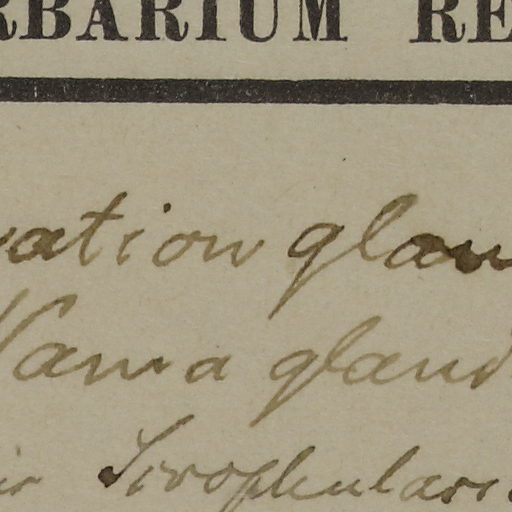 RBARIUM RE
ation glan
Nama gland
Scrophulari